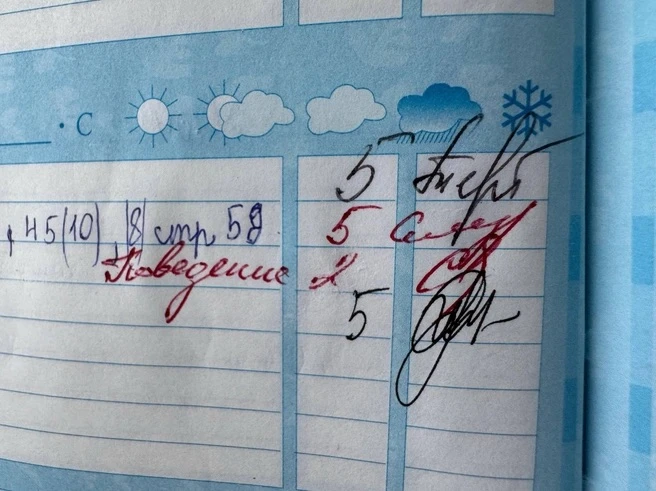 · C
5
, 45(10), (8) стр 58 5
Поведение 2
5